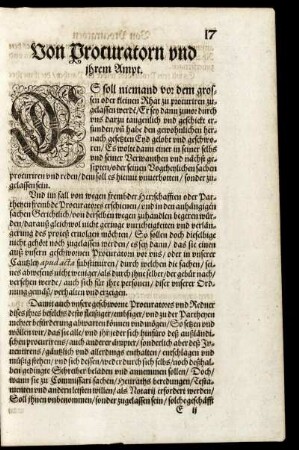 17
Von Procuratorn vnd
ihrem Ampt.
ES soll niemand vor dem gros-
sen oder kleinen Rhat zu procuriren zu-
gelassen werde/ Er sey dann zuuor durch
vns darzu taugenlich vnd geschickt er-
funden/ vñ habe den gewohnlichen her-
nach gesetzten Eyd gelobt vnd geschwo-
ren/ Es wolte dann einer in seiner selbst
vnd seiner Verwanthen vnd nächst ge-
sipten/ oder seinen Vogtherlichen sachen
procuriren vnd reden/ dem soll es hiemit vnuerbotten/ sonder zu-
gelassen sein.
Vnd im fall von wegen frembder Herrschafften oder Par-
theyen frembde Procurators erschienen/ vnd in den anhängigen
sachen Gerichtlich/ von derselben wegen zuhandlen begeren wür-
den/ darauß gleichwol nicht gering vnrichtigkeiten vnd verlän-
gerung des proceß erruolgen möchten/ So sollen doch dieselbige
nicht gehört noch zugelassen werden/ es sey dann/ das sie einen
auß vnsern geschwornen Procuratorn vor vns/ oder in vnserer
Cantzley apud acta substituiren/ durch welchen die sachen/ sei-
nes abwesens nicht weniger/ als durch ihne selber/ der gebür nach/
versehen werde/ auch sich für ihre personen/ diser vnserer Ord-
nung gemäß/ verhalten vnd erzeigen.
Damit auch vnsere geschworne Procurators vnd Redner
dises ihres beuelchs desto fleissiger/ embsiger/ vnd zu der Partheyen
mehrer befürderung abwarten können vnd mügen/ So setzen vnd
wöllen wir/ das sie alle/ vnd jeder der sich hinfüro deß außländi-
schen procurirens/ auch anderer ämpter/ sonderlich aber deß In-
cenirens/ gäntzlich vnd allerdings enthalten/ entschlagen vnd
müssig stehen/ vnd sich dessen/ weder durch sich selbs/ noch deßhal-
ben gedingte Schreiber beladen vnd annemmen sollen/ Doch/
wann sie zu Commissari sachen/ Heyraths beredungen/ Testa-
menten vnd andern leisten willen/ als Notarij erfordert werden/
Soll ihnen vnbenommen/ sonder zugelassen sein/ solche geschäfft
E ij